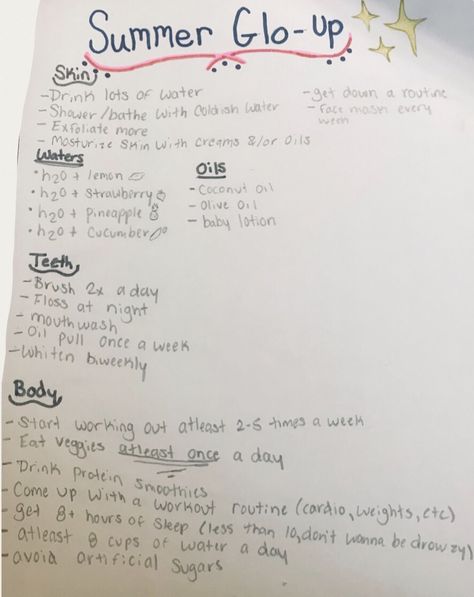 Summer Glo-up
Skin
- Drink lots of water
- Shower/bathe with coldish water
- Exfoliate more
- Mosturize skin with creams &/or oils
- get down a routine
- Face mask every
week
Waters
• h2o + lemon
• h2o + Strawberry
• h2o + pineapple
• h2o + cucumber
Oils
- Coconut oil
- Olive oil
- baby lotion
Teeth
- Brush 2x a day
- Floss at night
- mouthwash
- Oil pull once a week
- Whiten biweekly
Body
- Start working out atleast 2-5 times a week
- Eat veggies atleast once a day
- Drink Protein smoothies
- Come up with a workout routine (cardio, weights, etc)
- get 8+ hours of sleep (less than 10, don't wanna be drowzy)
- atleast 8 cups of water a day
- avoid artificial sugars